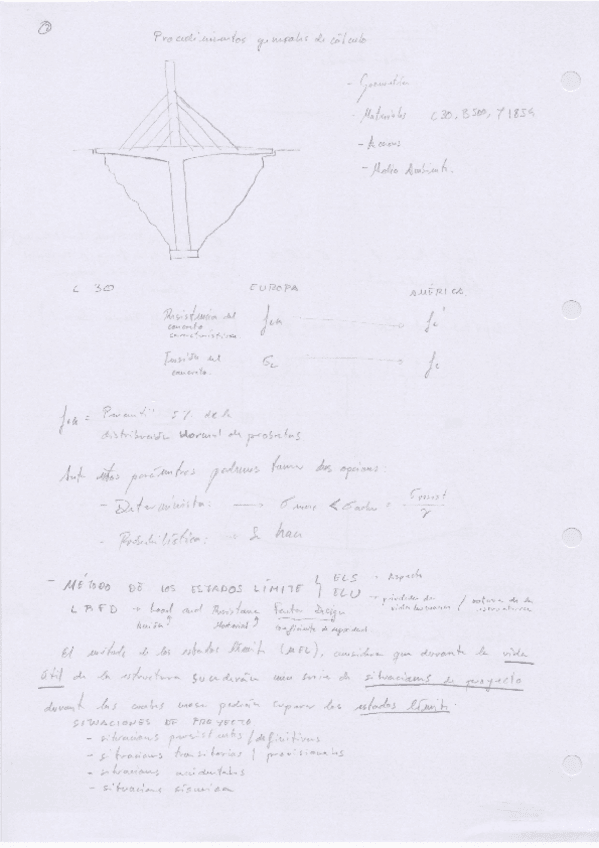 Procedimientos generales de cálculo
- Geometría
- Materiales C30, B500, Y1854
- Acciones
- Medio Ambiente.
C 30 EUROPA AMÉRICA
Resistencia del concreto característica fck fc'
Tensión del concreto. σc fc
fck = 5% de la
distribución Normal de probetas
Ante estos parámetros podemos tomar dos opciones:
- Determinista: →
- Probabilística: →
- MÉTODO DE LOS ESTADOS LÍMITE { ELS → Aspecto
ELU → pérdidas de vidas humanas / rotura de la estructura
LRFD → Load and Resistance Factor Design
Acción γ Material γ coeficiente de seguridad
El método de los estados límite (MEL), considera que durante la vida
útil de la estructura sucederán una serie de situaciones de proyecto
durante las cuales nunca podrán superar los estados límite.
SITUACIONES DE PROYECTO
- situaciones persistentes / definitivas
- situaciones transitorias / provisionales
- situaciones accidentales
- situaciones sísmicas